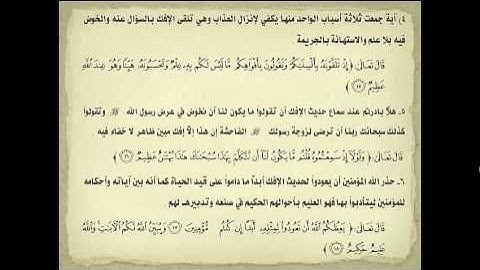 ٤) آية جمعت ثلاثة أسباب الواحد منها يكفي لإنزال العذاب وهي تلقي الإفك بالسؤال عنه والخوض
فيه بلا علم والاستهانة بالجريمة
قال تعالى ﴿ إِذْ تَلَقَّوْنَهُ بِأَلْسِنَتِكُمْ وَتَقُولُونَ بِأَفْوَاهِكُم مَّا لَيْسَ لَكُم بِهِ عِلْمٌ وَتَحْسَبُونَهُ هَيِّنًا وَهُوَ عِندَ اللَّهِ
عَظِيمٌ ﴾
٥. هلا بادرتم عند سماع حديث الإفك أن تقولوا ما يكون لنا أن نخوض في عرض رسول الله ﷺ وتقولوا
كذلك سبحانك ربنا أن ترضى لزوجة رسولك ﷺ الفاحشة إن هذا إلا إفك مبين ظاهر لا خفاء فيه
قال تعالى ﴿ وَلَوْلَا إِذْ سَمِعْتُمُوهُ قُلْتُم مَّا يَكُونُ لَنَا أَن نَّتَكَلَّمَ بِهَذَا سُبْحَانَكَ هَذَا بُهْتَانٌ عَظِيمٌ ﴾
٦. حذر الله المؤمنين أن يعودوا لحديث الإفك أبدا ما داموا على قيد الحياة كما أنه بين آياته وأحكامه
للمؤمنين ليتأدبوا بها فهو العليم بأحوالهم الحكيم في صنعه وتدبيره لهم .
قال تعالى ﴿ يَعِظُكُمُ اللَّهُ أَن تَعُودُوا لِمِثْلِهِ أَبَدًا إِن كُنتُم مُّؤْمِنِينَ ۝ وَيُبَيِّنُ اللَّهُ لَكُمُ الْآيَاتِ وَاللَّهُ
عَلِيمٌ حَكِيمٌ ﴾